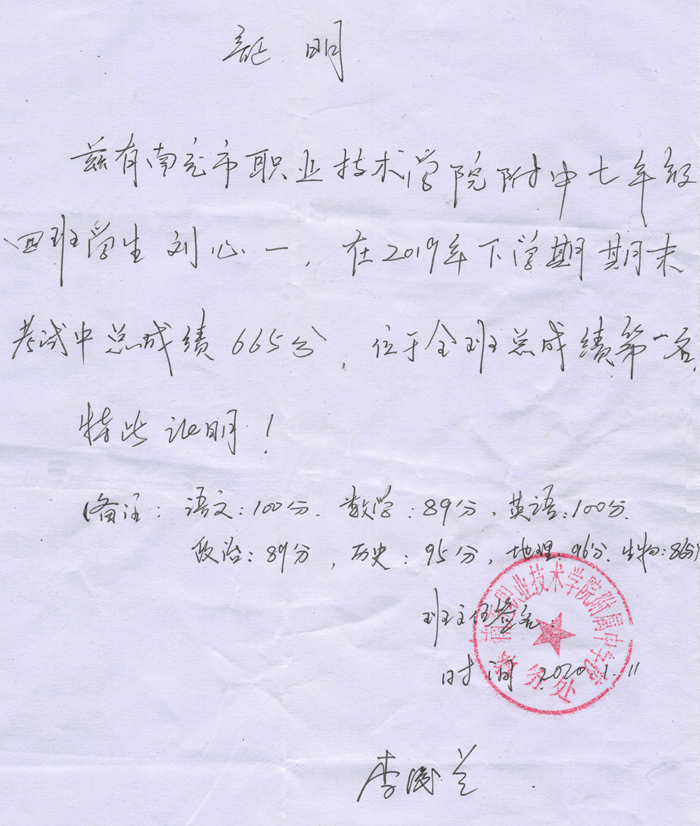 证 明
兹有南充市职业技术学院附中七年级
四班学生刘心一，在2019年下学期期末
考试中总成绩665分，位于全班总成绩第一名，
特此证明！
备注：语文：100分、数学：89分、英语：100分、
政治：89分，历史：95分，地理：96分、生物：
班主任签名：
时间 2020.1.11
职业技术学院附属中学
教务处
李